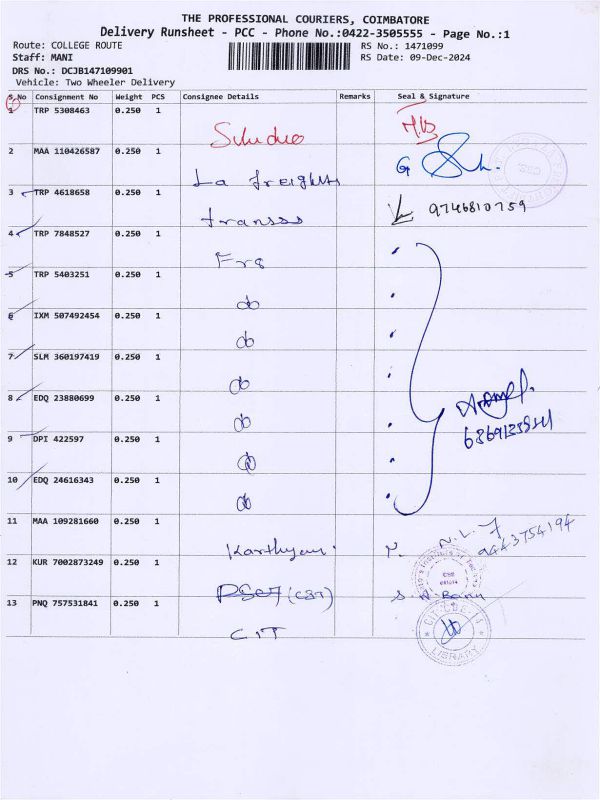 THE PROFESSIONAL COURIERS, COIMBATORE
Delivery Runsheet - PCC - Phone No.:0422-3505555 - Page No.:1
Route: COLLEGE ROUTE RS No.: 1471099
Staff: MANI RS Date: 09-Dec-2024
DRS No.: DCJB147109901
Vehicle: Two Wheeler Delivery
S.No Consignment No Weight PCS Consignee Details Remarks Seal & Signature
1 TRP 5308463 0.250 1
2 MAA 110426587 0.250 1
La freights
3 TRP 4618658 0.250 1 9746810759
4 TRP 7848527 0.250 1
5 TRP 5403251 0.250 1
do
6 IXM 507492454 0.250 1
do
7 SLM 360197419 0.250 1
do
8 EDQ 23880699 0.250 1
do
9 DPI 422597 0.250 1
do
10 EDQ 24616343 0.250 1
do
11 MAA 109281660 0.250 1
9443754194
12 KUR 7002873249 0.250 1
(CST)
13 PNQ 757531841 0.250 1
CIT
LIBRARY